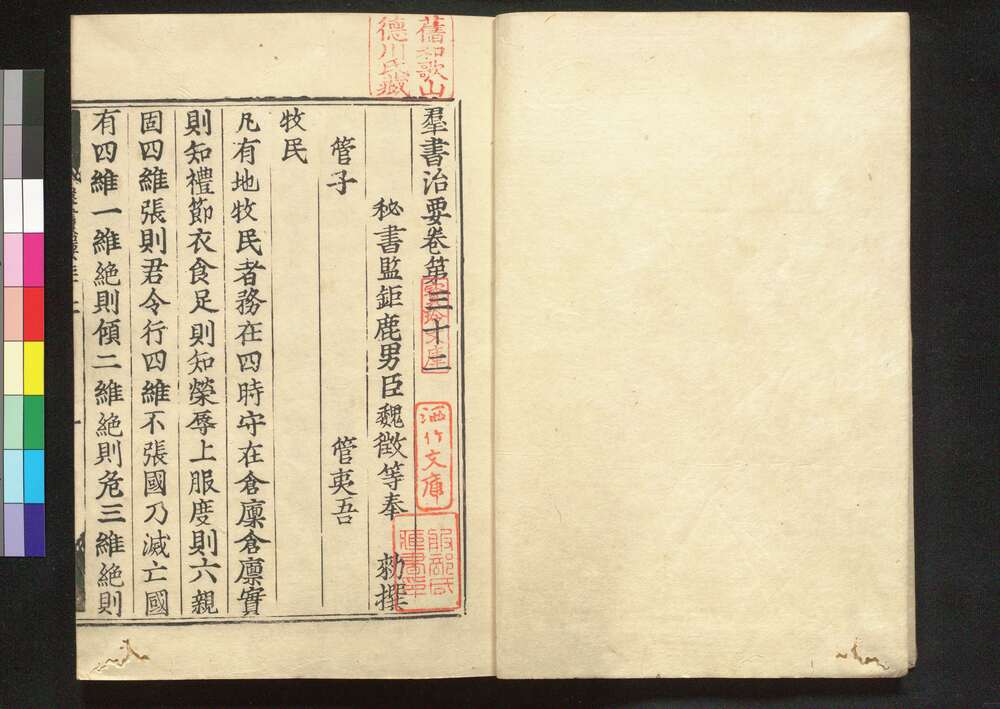 羣書治要卷第三十二
秘書監鉅鹿男臣魏徵等奉 勑撰
管子 管夷吾
牧民
凡有地牧民者務在四時守在倉廩倉廩實
則知禮節衣食足則知榮辱上服度則六親
固四維張則君令行四維不張國乃滅亡國
有四維一維絕則傾二維絕則危三維絕則
舊和歌山
德川氏藏
洒竹文庫
服部氏